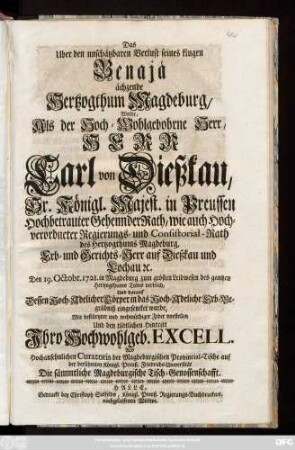 Das
Uber den unschätzbaren Verlust seines klugen
Benaja
ächzende
Hertzogthum Magdeburg/
Wolte,
Als der Hoch-Wohlgebohrne Herr,
HERR
Carl von Dießkau,
Sr. Königl. Majest. in Preussen
Hochbetrauter Geheimder Rath, wie auch Hoch-
verordneter Regierungs- und Consistorial-Rath
des Hertzogthums Magdeburg,
Erb- und Gerichts-Herr auf Dießkau und
Lochau &c.
Den 19. Octobr. 1721. in Magdeburg zum grösten Leidwesen des gantzen
Hertzogthums Todes verblich,
Und darauf
Dessen Hoch-Adelicher Cörper in das Hoch-Adeliche Erb-Be-
gräbniß eingesencket wurde,
Mit bestürtzter und wehmüthiger Feder vorstellen
Und den tödtlichen Hintritt
Ihro Hochwohlgeb. EXCELL.
Hochansehnlichen Curatoris der Magdeburgischen Provincial-Tische auf
der berühmten Königl. Preuß. Friedrichs-Universität
Die sämmtliche Magdeburgische Tisch-Genossenschafft.
HALLE,
Gedruckt bey Christoph Salfelds, Königl. Preuß. Regierungs-Buchdruckers,
nachgelassenen Wittwe.